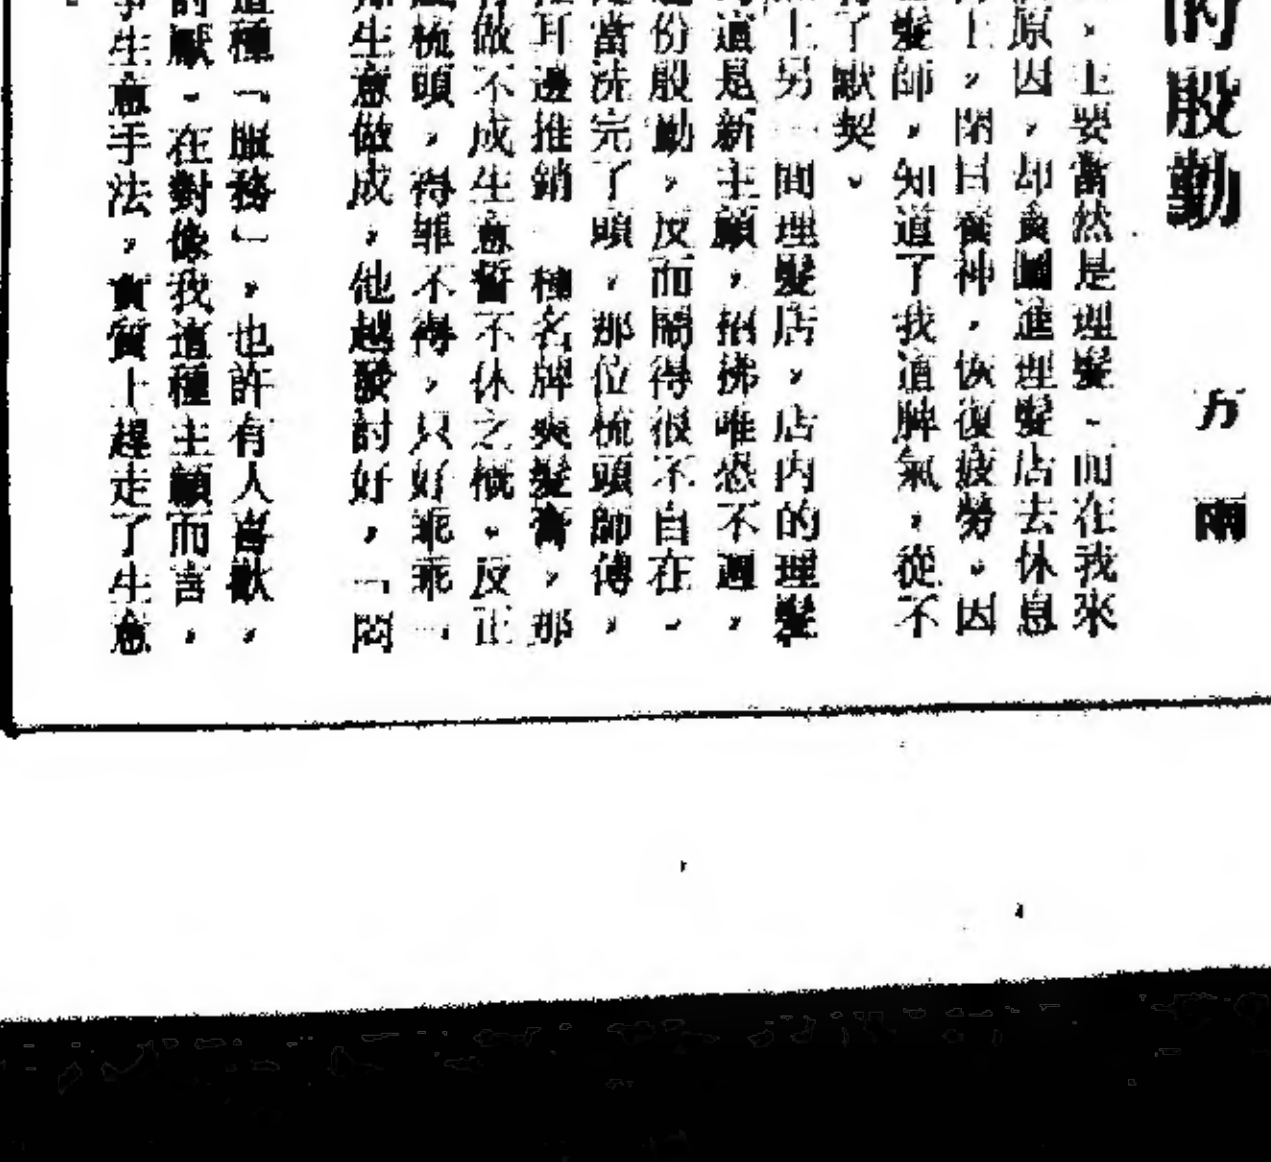 的殷勤
方雨
，主要當然是理髮、而在我來
原因，却貪圖進理髮店去休息
上，閉目養神，恢復疲勞。因
髮師，知道了我這脾氣，從不
了默契。
上另一間理髮店，店內的理髮
這是新主顧，招拂唯恐不週，
份殷勤，反而鬧得很不自在。
當洗完了頭，那位梳頭師傅，
耳邊推銷 種名牌爽髮膏，那
做不成生意誓不休之概。反正
梳頭，得罪不得，只好乖乖「
生意做成，他越發討好，「悶
這種「服務」，也許有人喜歡，
討厭。在對像我這種主顧而言，
生意手法，實質上趕走了生意